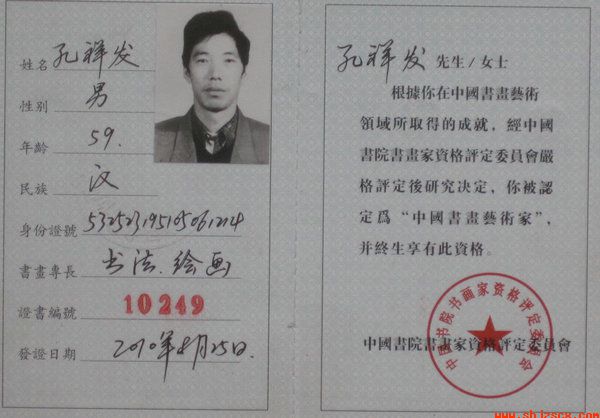 姓名 孔祥发
性别 男
年齡 59.
民族 汉
身份證號
書畫專長 书法.绘画
證書編號 10249
發證日期 2010年8月25日.
孔祥发 先生/女士
根據你在中國書畫藝術
領域所取得的成就，經中國
書院書畫家資格評定委員會嚴
格評定後研究決定，你被認
定爲“中國書畫藝術家”，
并終生享有此資格。
中國書院書畫家資格評定委員會
中国书院书画家资格评定委员会